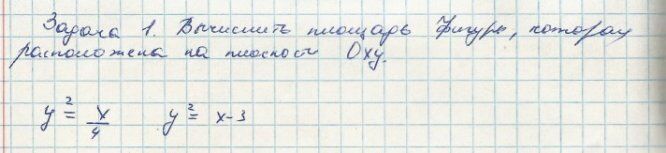 Задача 1. Вычислить площадь фигуры, которая
расположена на плоскости Oxy.
y² = x/4 y² = x-3